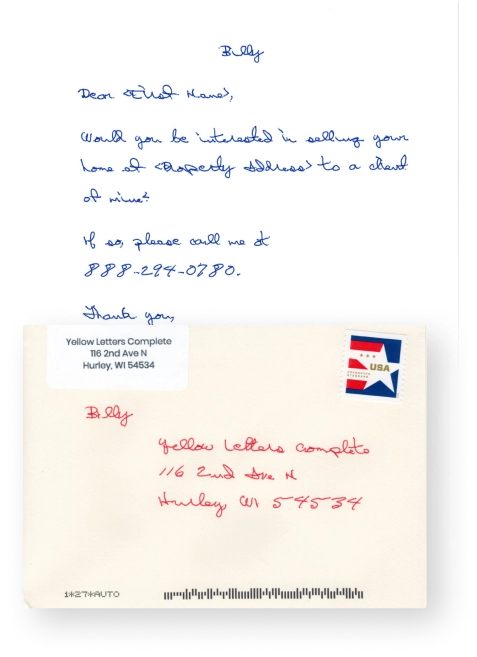 Billy
Dear <First Name>,
Would you be interested in selling your
home at <Property Address> to a client
of mine?
If so, please call me at
888-294-0780.
Thank you,
Yellow Letters Complete
116 2nd Ave N
Hurley, WI 54534
USA
Billy
Yellow Letters Complete
116 2nd Ave N
Hurley, WI 54534
1*27*AUTO